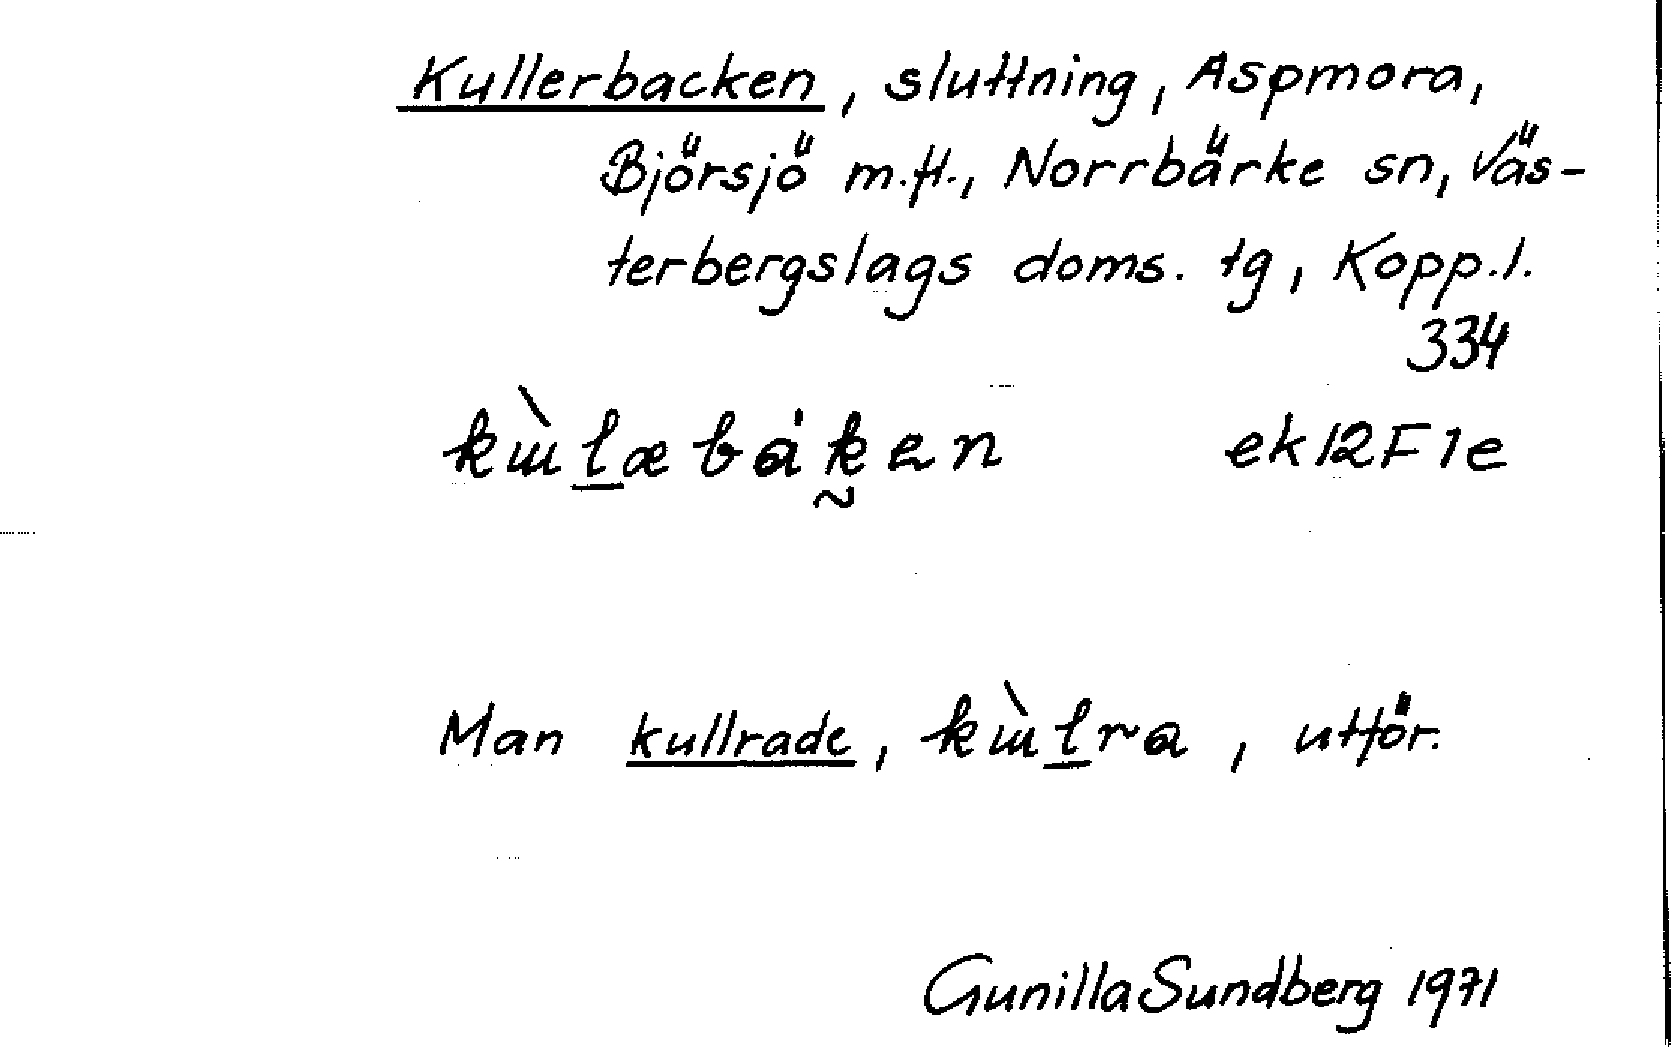 Kullerbacken, sluttning, Aspmora,
Björsjö m.fl., Norrbärke sn, Väs-
terbergslags doms. tg, Kopp.l.
334
ek12F1e
Man kullrade, , utför.
Gunilla Sundberg 1971